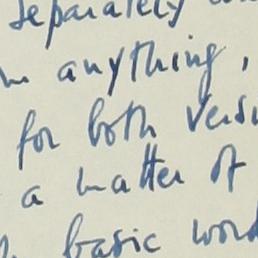 separately
anything,
for both
a matter of
basic